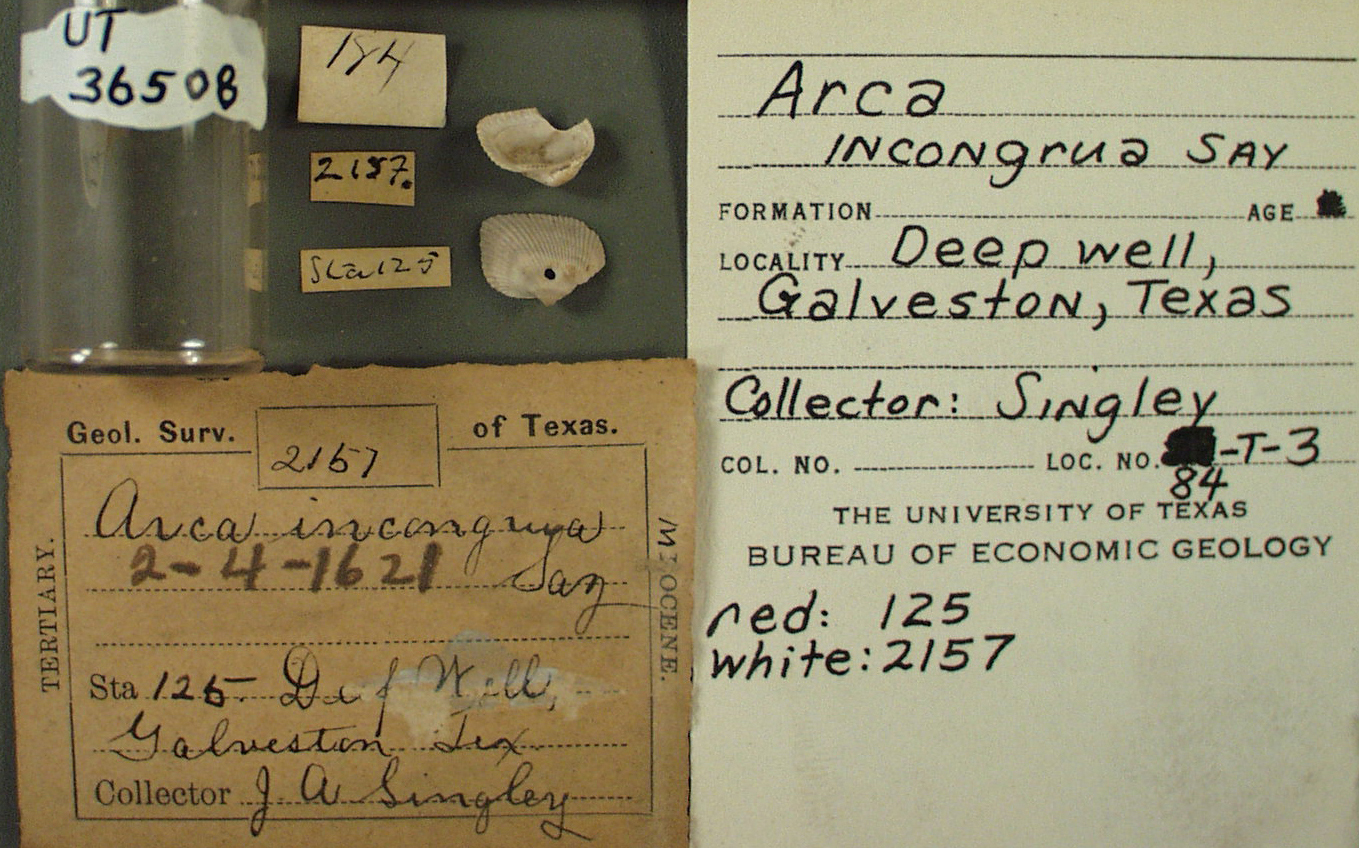 UT
36508
184
2157.
Sta 125
Geol. Surv. 2157 of Texas.
Arca incongrua
2-4-1621 Say
TERTIARY.
MIOCENE.
Sta 125 Deep Well,
Galveston Tex
Collector J A Singley
Arca
INCONgrua SAY
FORMATION AGE
LOCALITY Deep well,
Galveston, Texas
Collector: Singley
COL. NO. LOC. NO. -T-3
84
THE UNIVERSITY OF TEXAS
BUREAU OF ECONOMIC GEOLOGY
red: 125
white: 2157